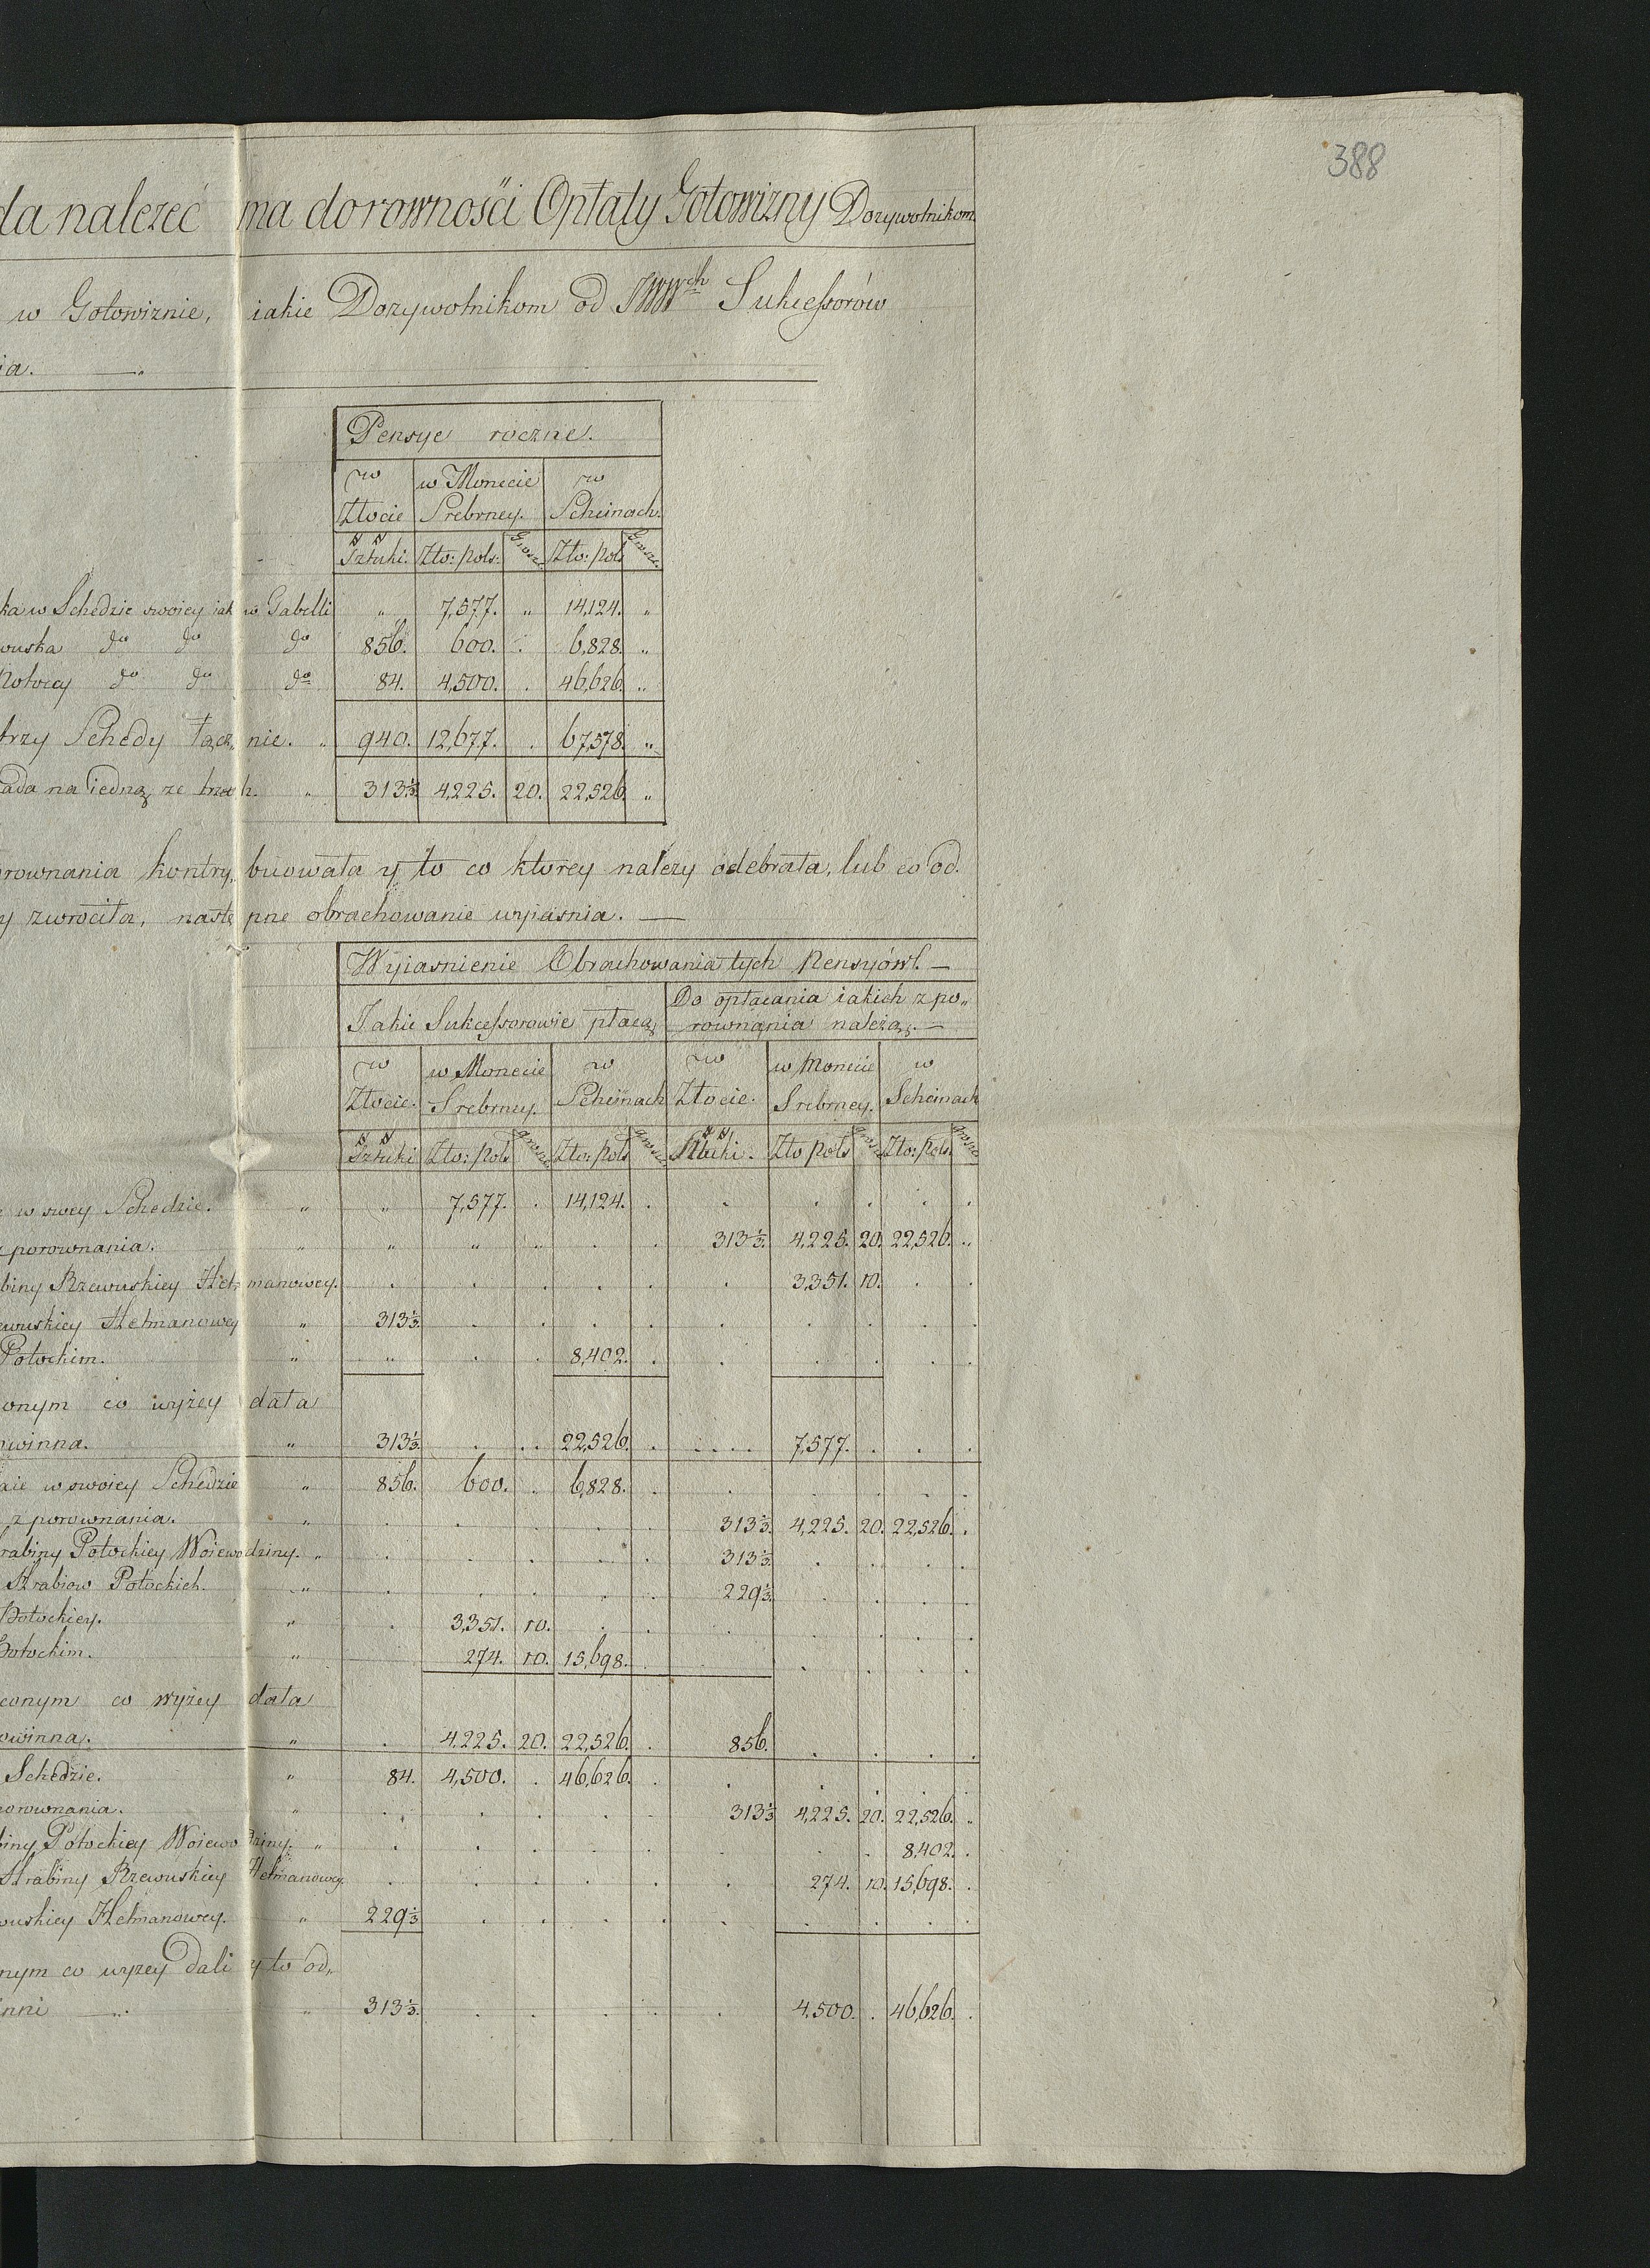 388
da nalezeć ma do rownosci Opłaty Gotowizny Dozywotnikom
w Gotowiznie, iakie Dozywotnikom od JWWch Sukcessorów
ia. —
Pensye roczne.
w Złocie w Monecie Srebrney. w Scheinach.
## Sztuki. Zło: pols: Grosze Zło: pols Grosze
ka w Schedzie swoiey iak w Tabelli " 7,577. " 14,124. "
wuska do do do 856. 600. . 6,828. "
Potoccy do do do 84. 4,500. . 46,626. "
trzy Schedy łącz,nie. " 940. 12,677. . 67,578. "
ada na iedną ze trzech. " 313⅓ 4,225. 20. 22,526. "
rownania kontry,buowała y to co ktorey nalezy odebrała, lub co od.
y zwrociła, nastę pne obrachowanie wyiasnia. —
Wyiasnienie Obrachowania tych Pensyów. —
Jakie Sukcessorowie płacą Do opłacania iakich z po„
rownania należą. —
w Złocie. w Monecie Srebrney. w Scheinach w Złocie. w Monecie Srebrney. w Scheinach
## Sztuki Zło: pols grosze Zło: pols grosze ## Sztuki. Zło pols grosze Zło: pols. grosze
w swey Schedzie. " " 7,577. . 14,124. . . . . . .
porownania. " " " " . . 313⅓. 4,225. 20. 22,526. "
biny Rzewuskiey Het,manowey. . . . . . . 3,351. 10. . .
ewuskiey Hetmanowey " 313⅓ . . . . . . . . .
Potockim. " " . . 8,402. . . . . . .
onym co wyżey dała
winna. " 313⅓. . . . 22,526. . . . . . 7,577. . . .
aie w swoiey Schedzie " 856. 600. . 6,828. . . . . . .
z porownania. " . . . . . 313⅓. 4,225. 20. 22,526. .
rabiny Potockiey Woiewodziny. " . . . . . 313⅓. . . . .
Hrabiow Potockich. " . . . . . 229⅓. . . . .
Potockiey. " . 3,351. 10. . . . . . . .
Potockim. " 274. 10. 15,698. . . . . .
conym co wyżey dała
owinna. " . 4.225. 20. 22,526. . 856. . . . .
Schedzie. " 84. 4,500. . 46,626. . . . . . .
porownania. " . . . . . 313⅓ 4,225. 20. 22,526. "
biny Potockiey Woiewodziny. " . . . . . . . 8,402. .
Hrabiny Rzewuskiey Hetmanowey. . . . . . . 274. 10. 15,698. .
wuskiey Hetmanowey. " 229⅓ . . . . . . . . .
nym co wyżey dali y to od„
inni —. " 313⅓. . . . . . 4,500. . 46,626. .